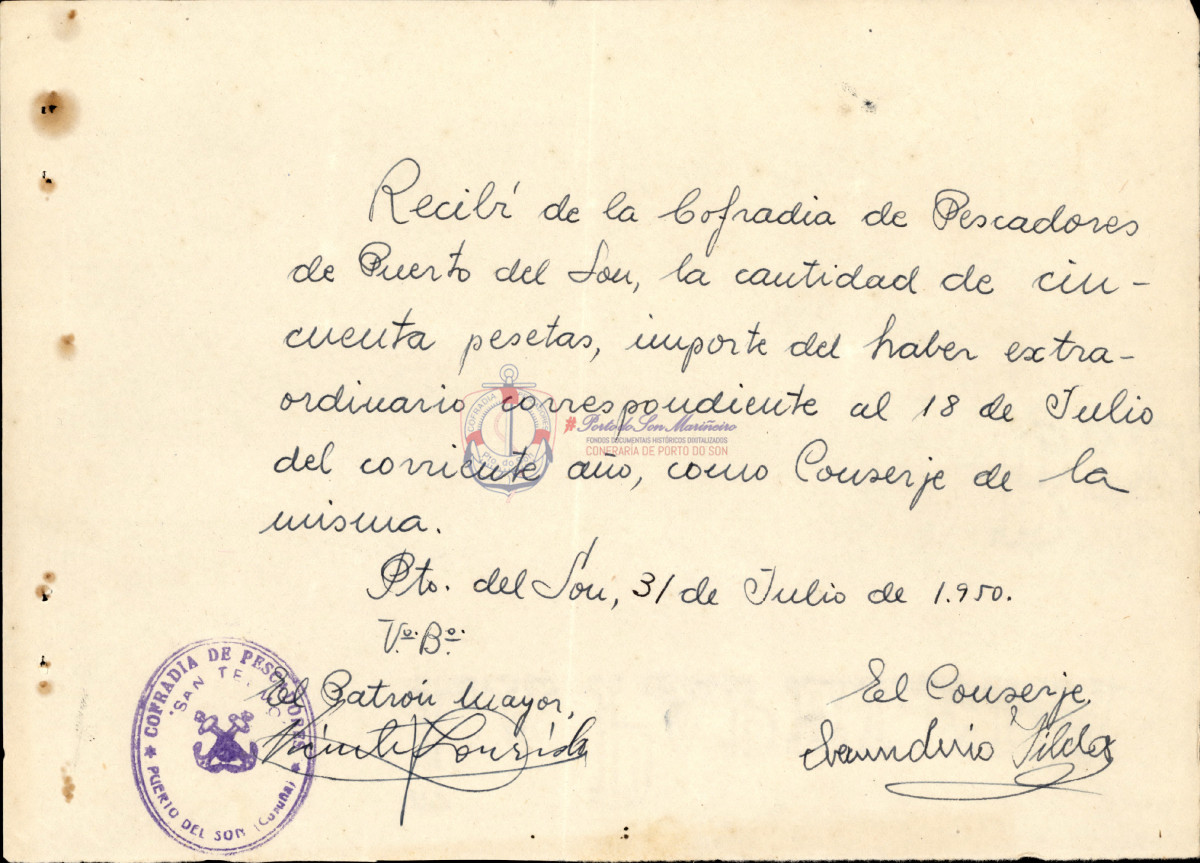 Recibí de la Cofradia de Pescadores
de Puerto del Son, la cantidad de cin-
cuenta pesetas, importe del haber extra-
ordinario correspondiente al 18 de Julio
del corriente año, como Conserje de la
misma.
Pto. del Son, 31 de Julio de 1.950.
Vº. Bº.
El Patrón Mayor,
El Conserje,
Vicente
COFRADIA DE PESCADORES
"SAN TELMO"
PUERTO DEL SON (Coruña)
COFRADIA
Pto. do Son
#Porto do Son Mariñeiro
FONDOS DOCUMENTAIS HISTÓRICOS DIXITALIZADOS
CONFRARÍA DE PORTO DO SON